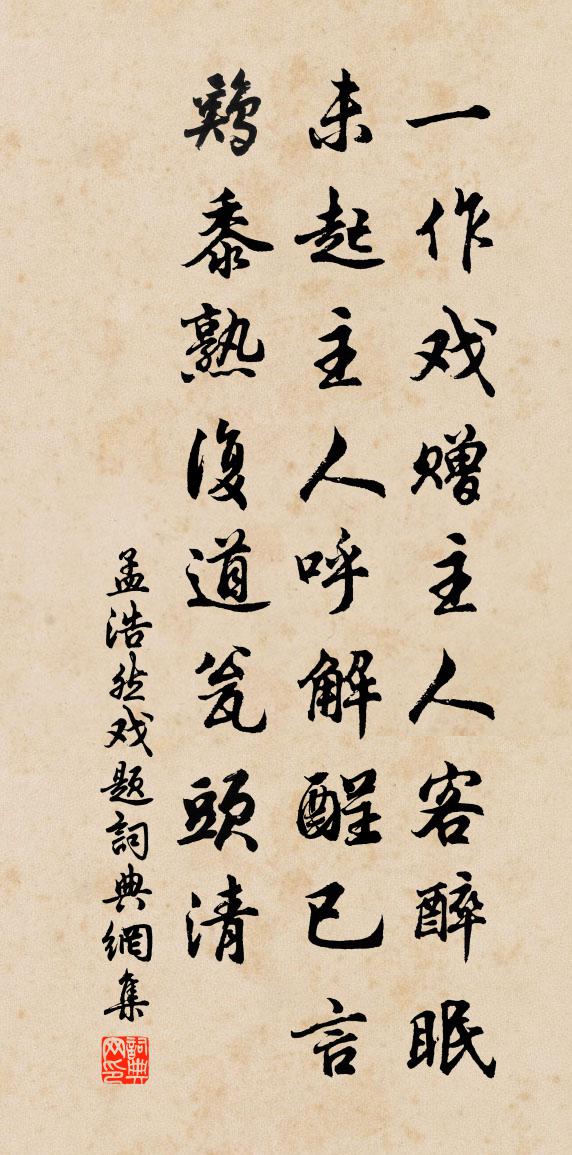 一作戏赠主人客醉眠
未起主人呼解酲已言
鶏黍熟復道瓮頭清
孟浩然戏题詞典網集
詞典网印